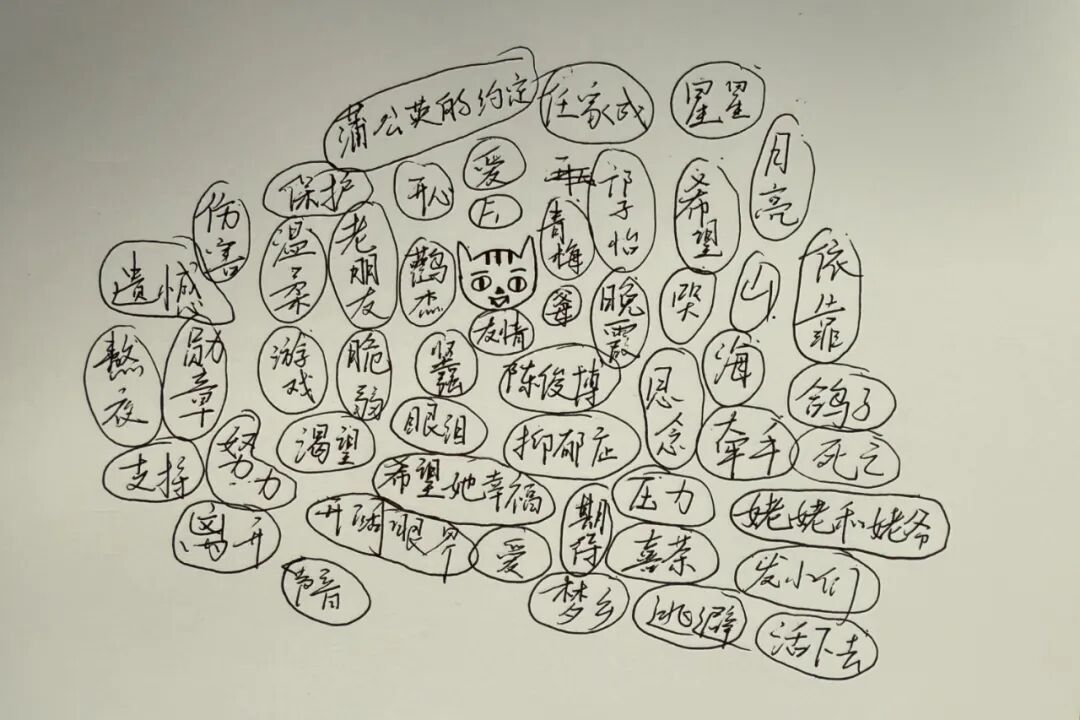 蒲公英的约定
任家成
星星
月亮
爱
保护
开心
伤害
温柔
老朋友
青梅
邝子怡
希望
依靠
遗憾
鹳杰
友情
晚霞
哭
山
海
熬夜
勋章
游戏
脆弱
坚强
陈俊博
思念
鸽子
眼泪
渴望
抑郁症
牵手
死亡
支持
努力
希望她幸福
压力
姥姥和姥爷
离开
开阔眼界
爱
期待
喜茶
发小们
声音
梦乡
逃避
活下去